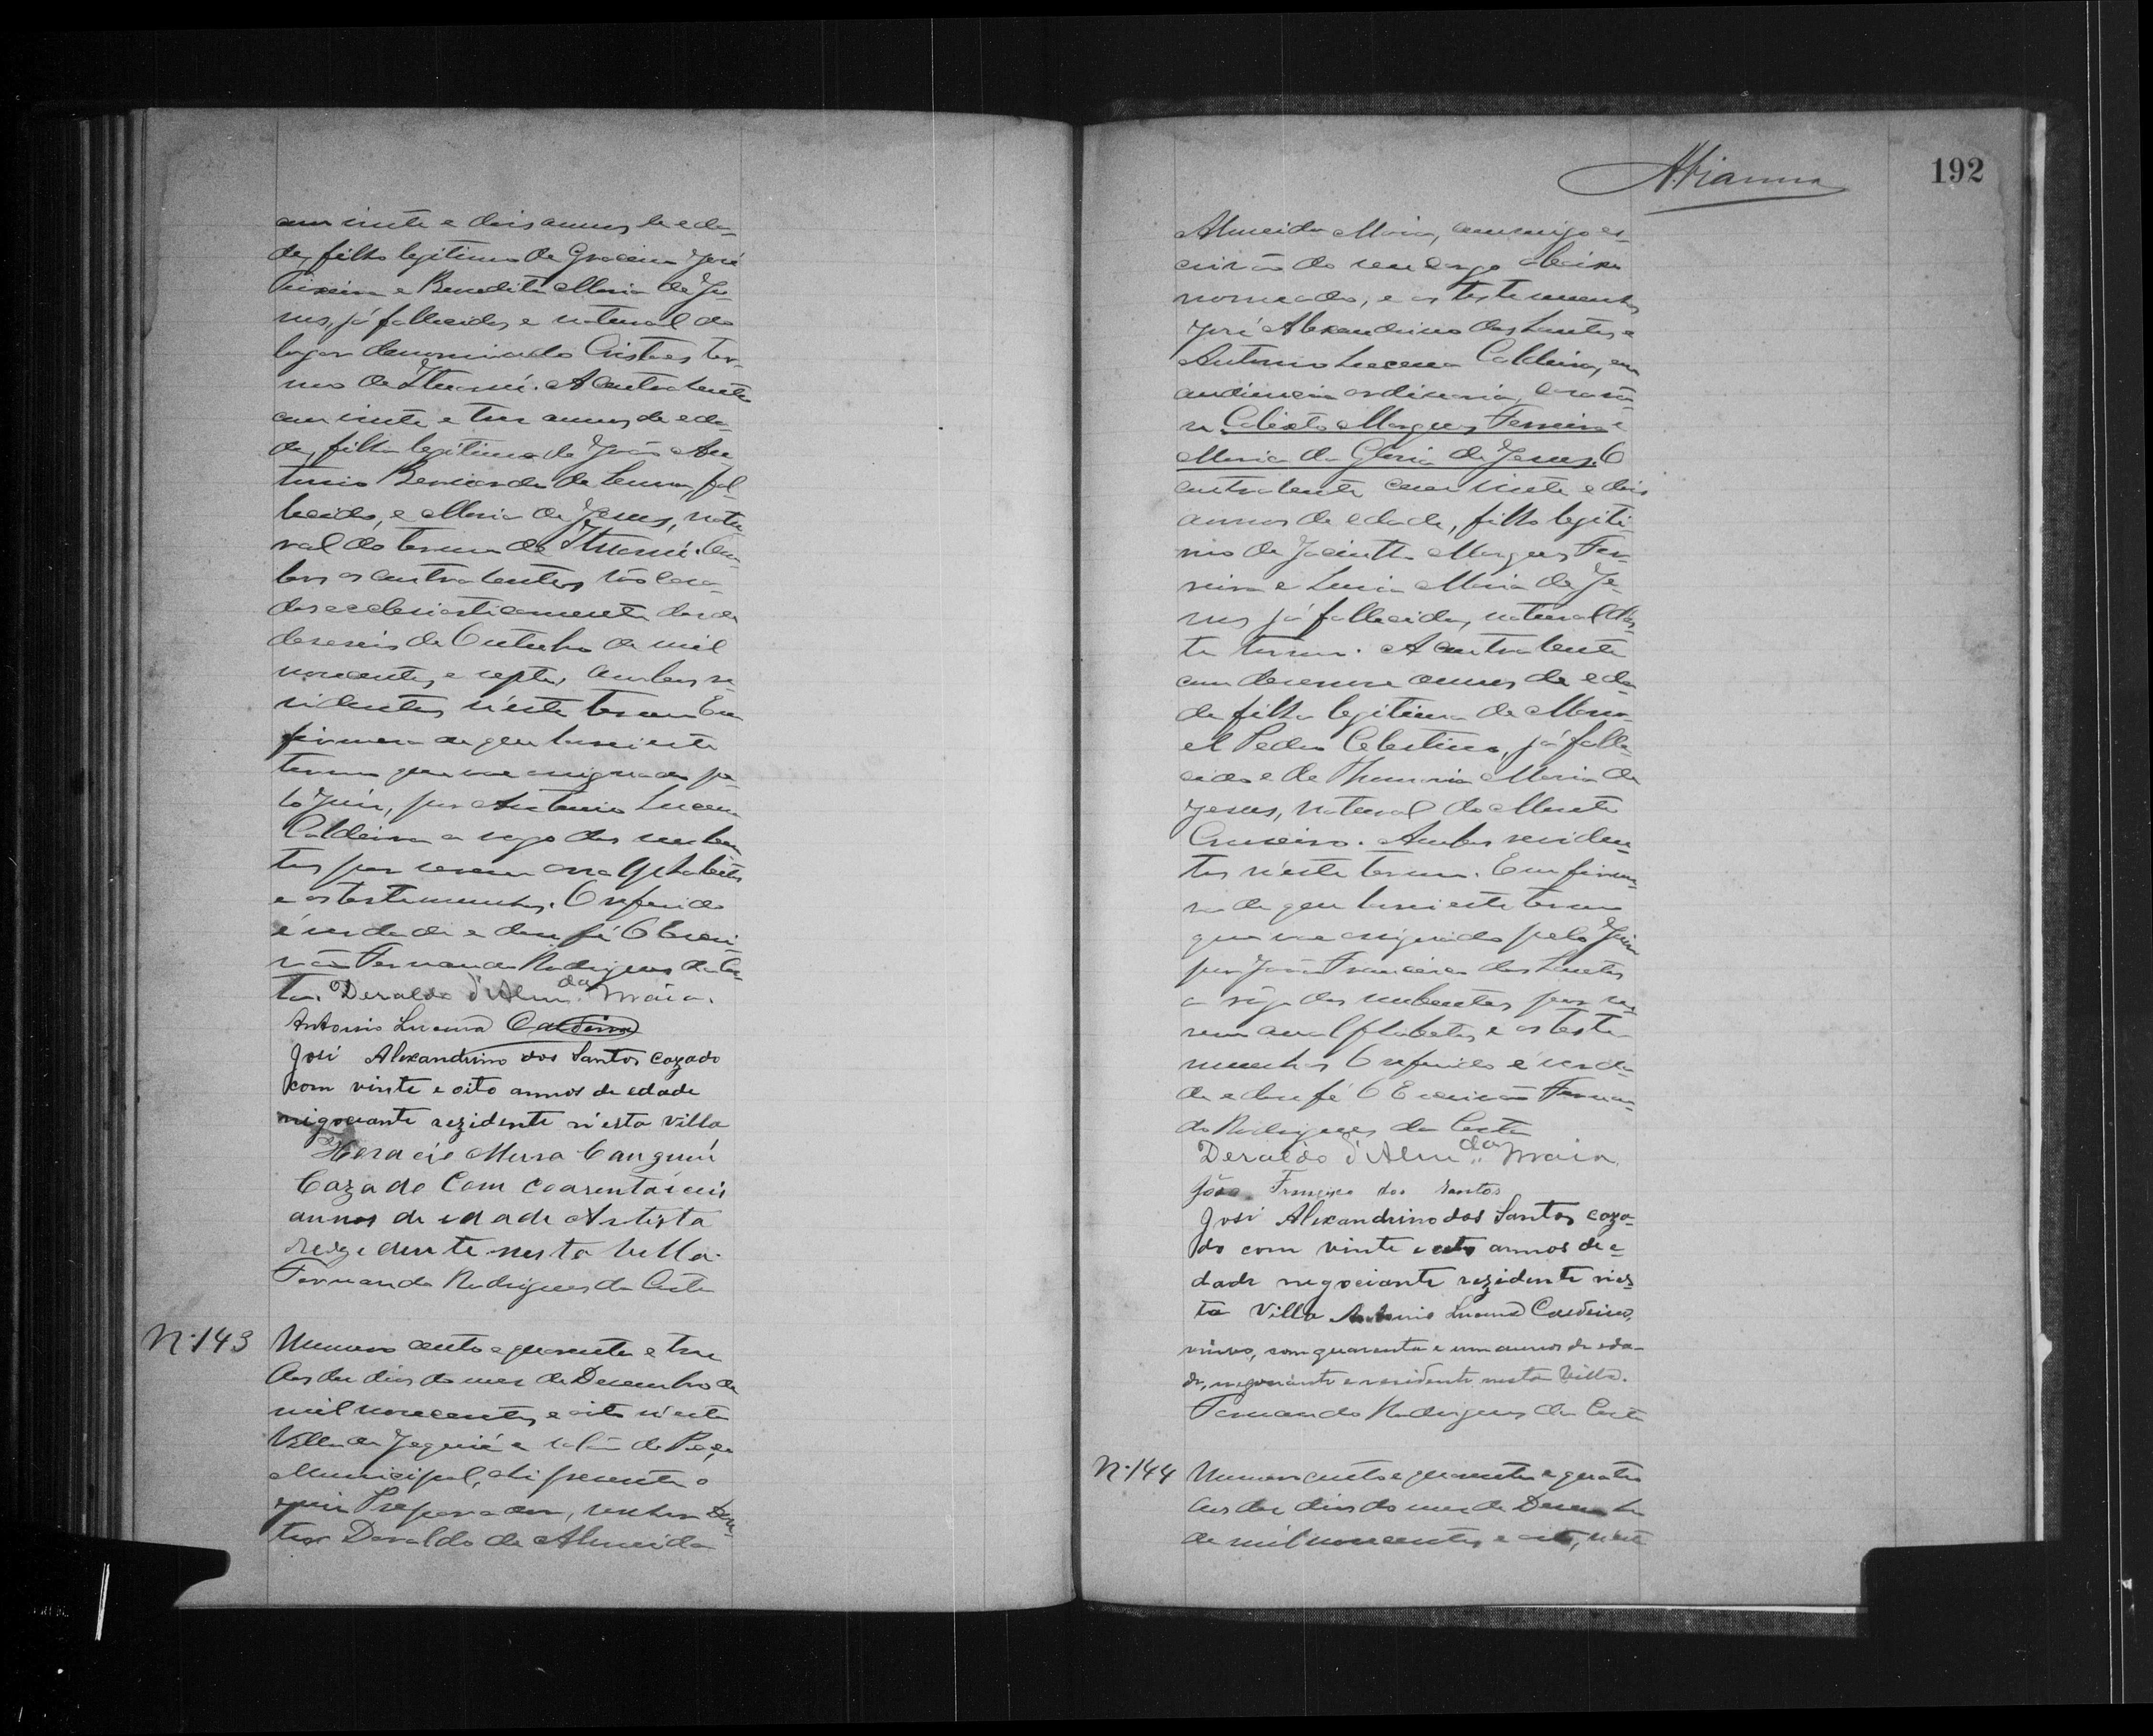 com vinte e dois annos de eda-
de, filho legitimo de José
Teixeira e Benedicta Maria de Je-
sus, já fallecidos e natural do
logar denominado Cristaes ter-
mo de Ituassú. A contrahente
com vinte e tres annos de eda-
de, filha legitima de João An-
tonio Bernardo de fal-
lecido, e Maria de Jesus, natu-
ral do termo de Ituassú. Am-
bos os contrahentes são casa-
dos ecclesiasticamente desde
deseseis de Outubro de mil
novecentos e sept, ambos re-
sidentes n'este termo Em
firmesa do que lavrei este
termo que vae assignado pe-
lo Juiz, por Antonio Lucena
Caldeira a rogo dos nuben-
tes por serem analphabetos
e as testemunhas. O referido
é verdade e dou fé O Escri-
vão Fernando Rodrigues da Cos-
ta. Deraldo d'Alm.da Maia.
Antonio Lucena Caldeira
José Alexandrino dos Santos cazado
com vinte e oito annos de edade
nigociante rezidente n'esta villa
Horacio Mura
Cazado Com Coarenta i ceis
annos de idade Artista
Rezedente nesta villa.
Fernando Rodrigues da Costa
N. 143
Numero cento e quarenta e tres
Aos des dias do mes de Dezembro de
mil novecentos e oito n'esta
Villa de Jequié e salão do Paço
Municipal, ahi presente o
Juiz Preparador, senhor Dou-
tor Deraldo de Almeida
192
A. Vianna
Almeida Maia, commigo es-
crivão do seu cargo abaixo
nomeado, e as testemunhas
José Alexandrino dos Santos e
Antonio Lucena Caldeira, em
audiencia ordinaria, casarão-
se Calixto Marques Ferreira e
Maria da Gloria de Jesus. O
contrahente com vinte e dois
annos de edade, filho legiti-
mo de Jacintho Marques Fer-
reira e Luzia Maria de Je-
sus já fallecida, natural d'es-
te termo. A contrahente
com desenove annos de eda-
de filha legitima de Mano-
el Pedro Celestino, já falle-
cido e de Thomasia Maria de
Jesus, natural do Monte
Cruseiro. Ambos residen-
tes n'este termo. Em firme-
sa do que lavrei este termo
que vae assignado pelo Juiz
por João Francisco dos Santos
a rogo dos nubentes por se-
rem analphabetos e as teste-
munhas O referido é verda-
de e dou fé O Escrivão Fernan-
do Rodrigues da Costa
Deraldo d'Alm.da Maia.
João Francisco dos Santos
José Alexandrino dos Santos caza-
do com vinte e oito annos de e-
dade negociante rezidente n'es-
ta Villa Antonio Lucena Caldeira,
viuvo, com quarenta e um annos de eda-
de, negociante e residente nesta Villa.
Fernando Rodrigues da Costa
N. 144
Numero cento e quarenta e quatro
Aos des dias do mes de Dezembro
de mil novecentos e oito, n'esta